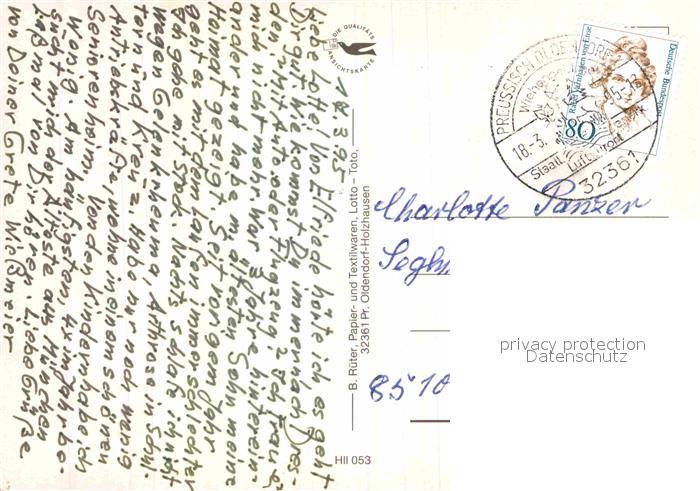 17.3.95
Liebe Lotte. Von Elfriede hörte ich es geht
Dir gut. Wie kommst Du immer nach Dres-
den, mit Auto oder Flugzeug? Ich traue
mich nicht mehr. War 3 Jahre hinterein-
ander und habe m. ältesten Sohn meine
Heimat gezeigt. Seit vorigem Jahr
geht es mit dem Laufen immer schlechter
Ich gehe mit Stock. Nachts schlafe ich nicht
wegen Gehirn Athrose in Schul-
tern und Kreuz. Habe nur noch wenig
Wohne in einem schönen
Seniorenheim. Von den Kindern habe ich
wenig. Am häufigsten, 4x im Jahr be-
sucht mich der Älteste aus München
Laß mal von Dir hören. Liebe Grüße
von Deiner Grete Wießmeier
DIE QUALITÄTS
ANSICHTSKARTE
B. Rüter, Papier- und Textilwaren, Lotto – Toto,
32361 Pr. Oldendorf-Holzhausen
HII 053
PREUSSISCH OLDENDORF
18-3.
Staatl. Luftkurort
32361
Deutsche Bundespost
Rahel Varnhagen von Ense
80
Charlotte Panzer
8510
privacy protection
Datenschutz